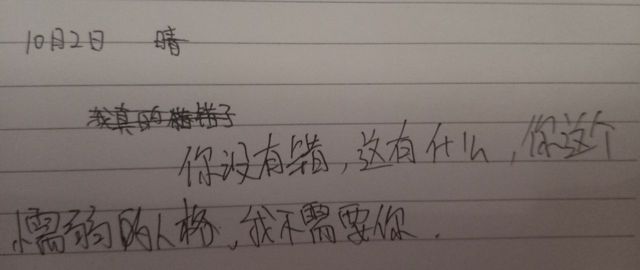 10月2日 晴
我真的错了
你没有错,这有什么,你这个
懦弱的人格,我不需要你.